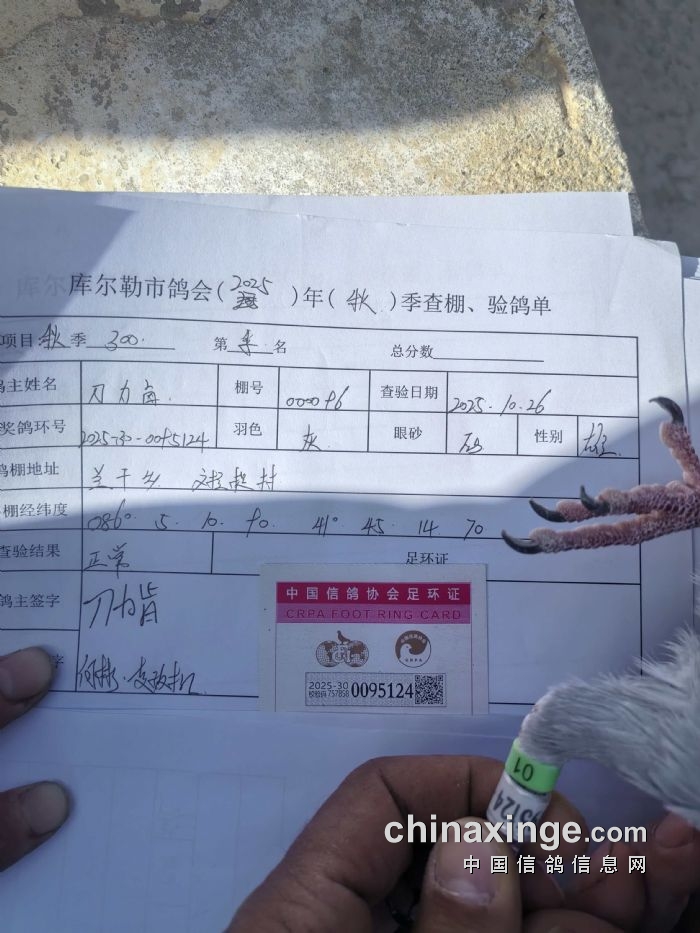 库尔勒市鸽会(2025)年(秋)季查棚、验鸽单
项目:秋季 300. 第 名 总分数
鸽主姓名 刀力 棚号 000096 查验日期 2025.10.26
奖鸽环号 2025-30-0095124 羽色 灰 眼砂 砂 性别 雄
鸽棚地址 兰干乡 村
棚经纬度 086° 5. 10. 90 41° 45. 14. 70
查验结果 正常 足环证
鸽主签字 刀力
字
中国信鸽协会足环证
CRPA FOOT RING CARD
CRPA
2025-30
校验码 757858 0095124
01
95124
chinaxinge.com
中国信鸽信息网